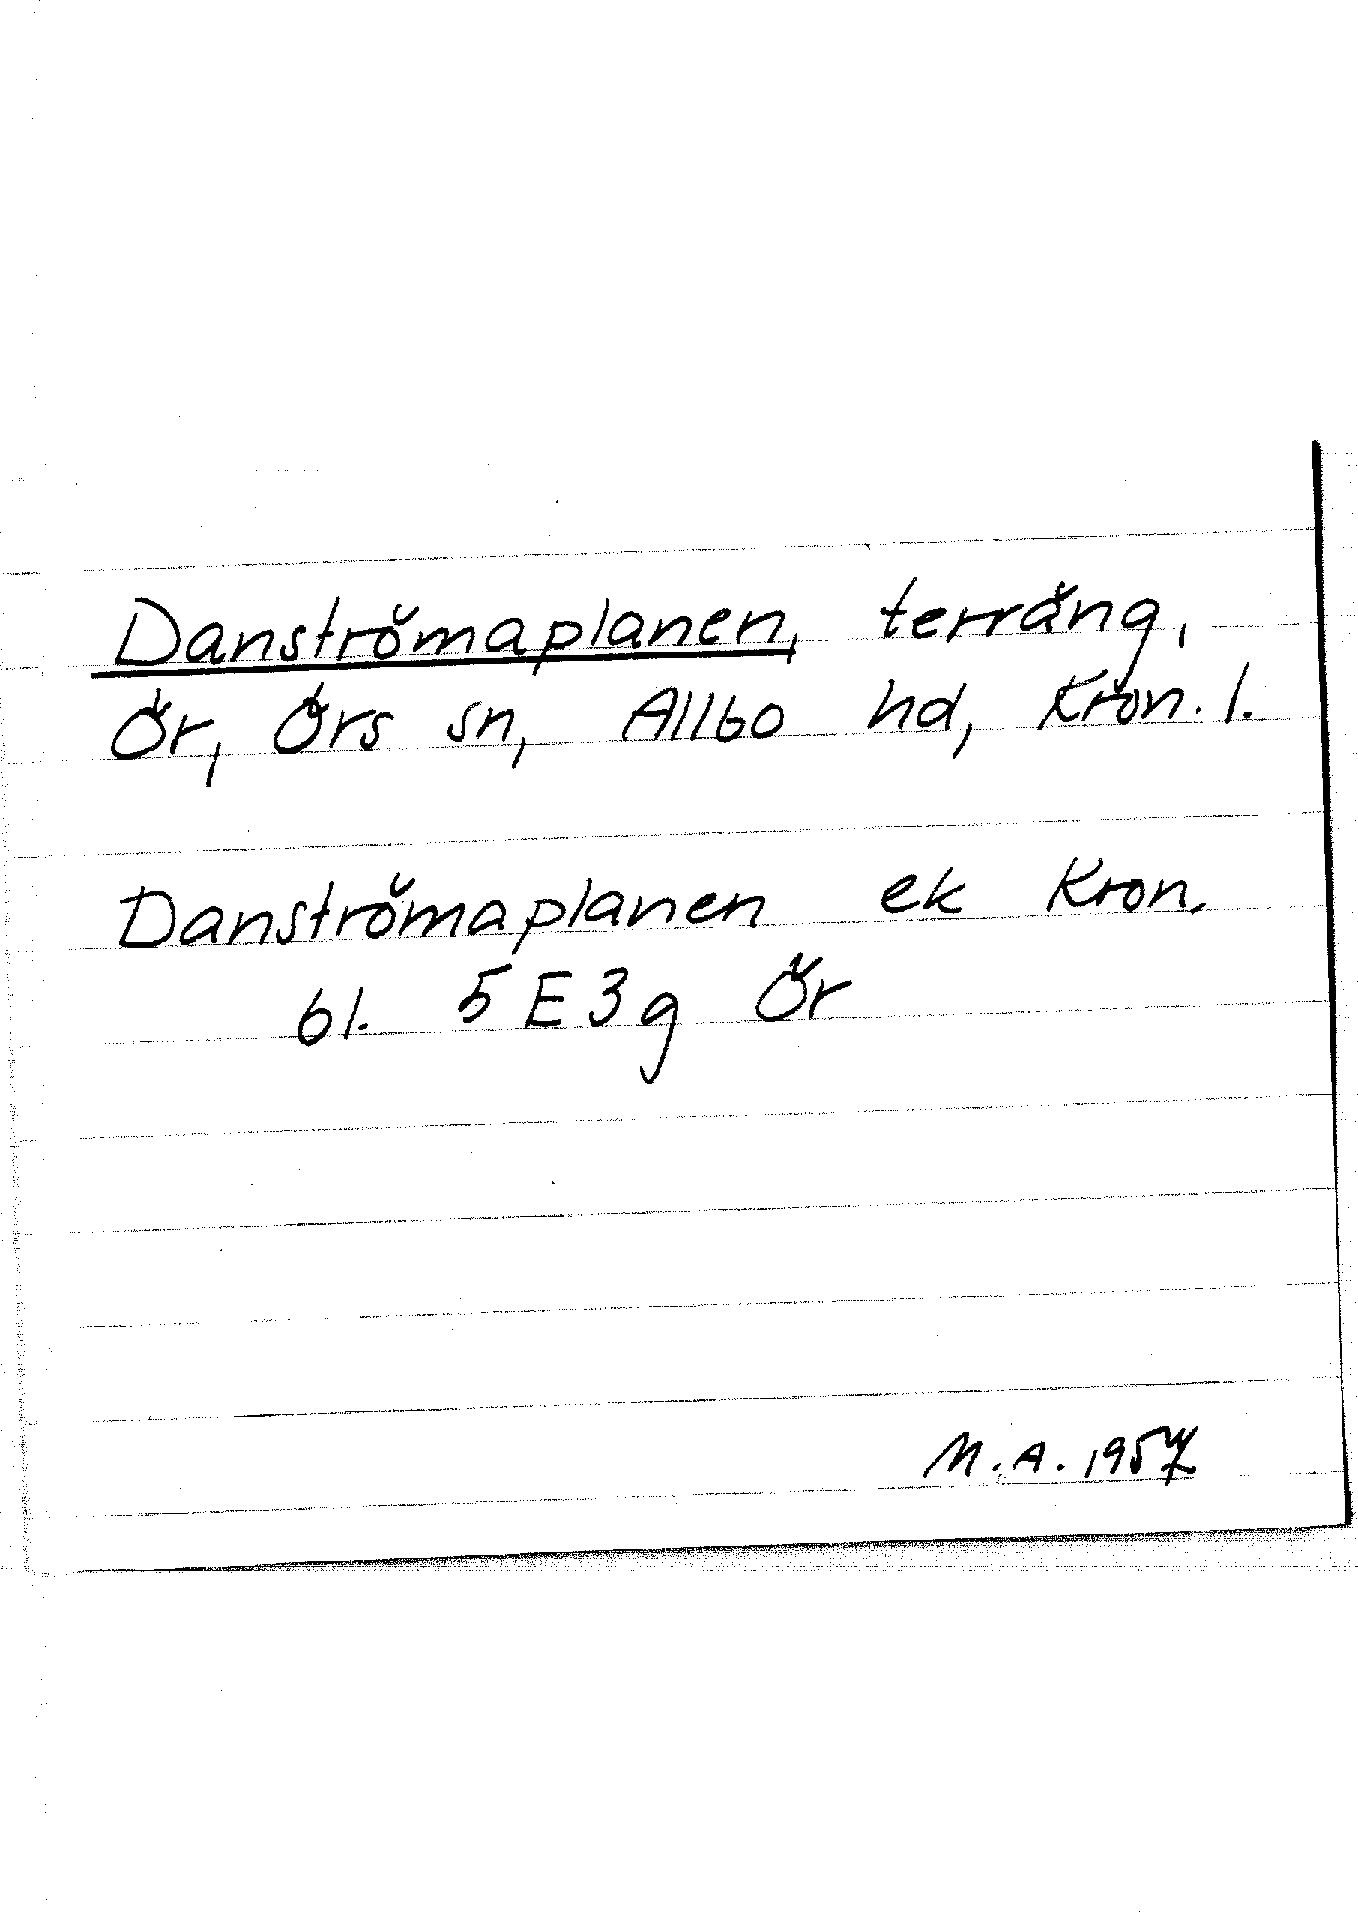 Danströmaplanen, terräng,
Ör, Örs sn, Allbo hd, Kron. l.
Danströmaplanen ek Kron.
bl. 5E3g Ör
M.A. 1957